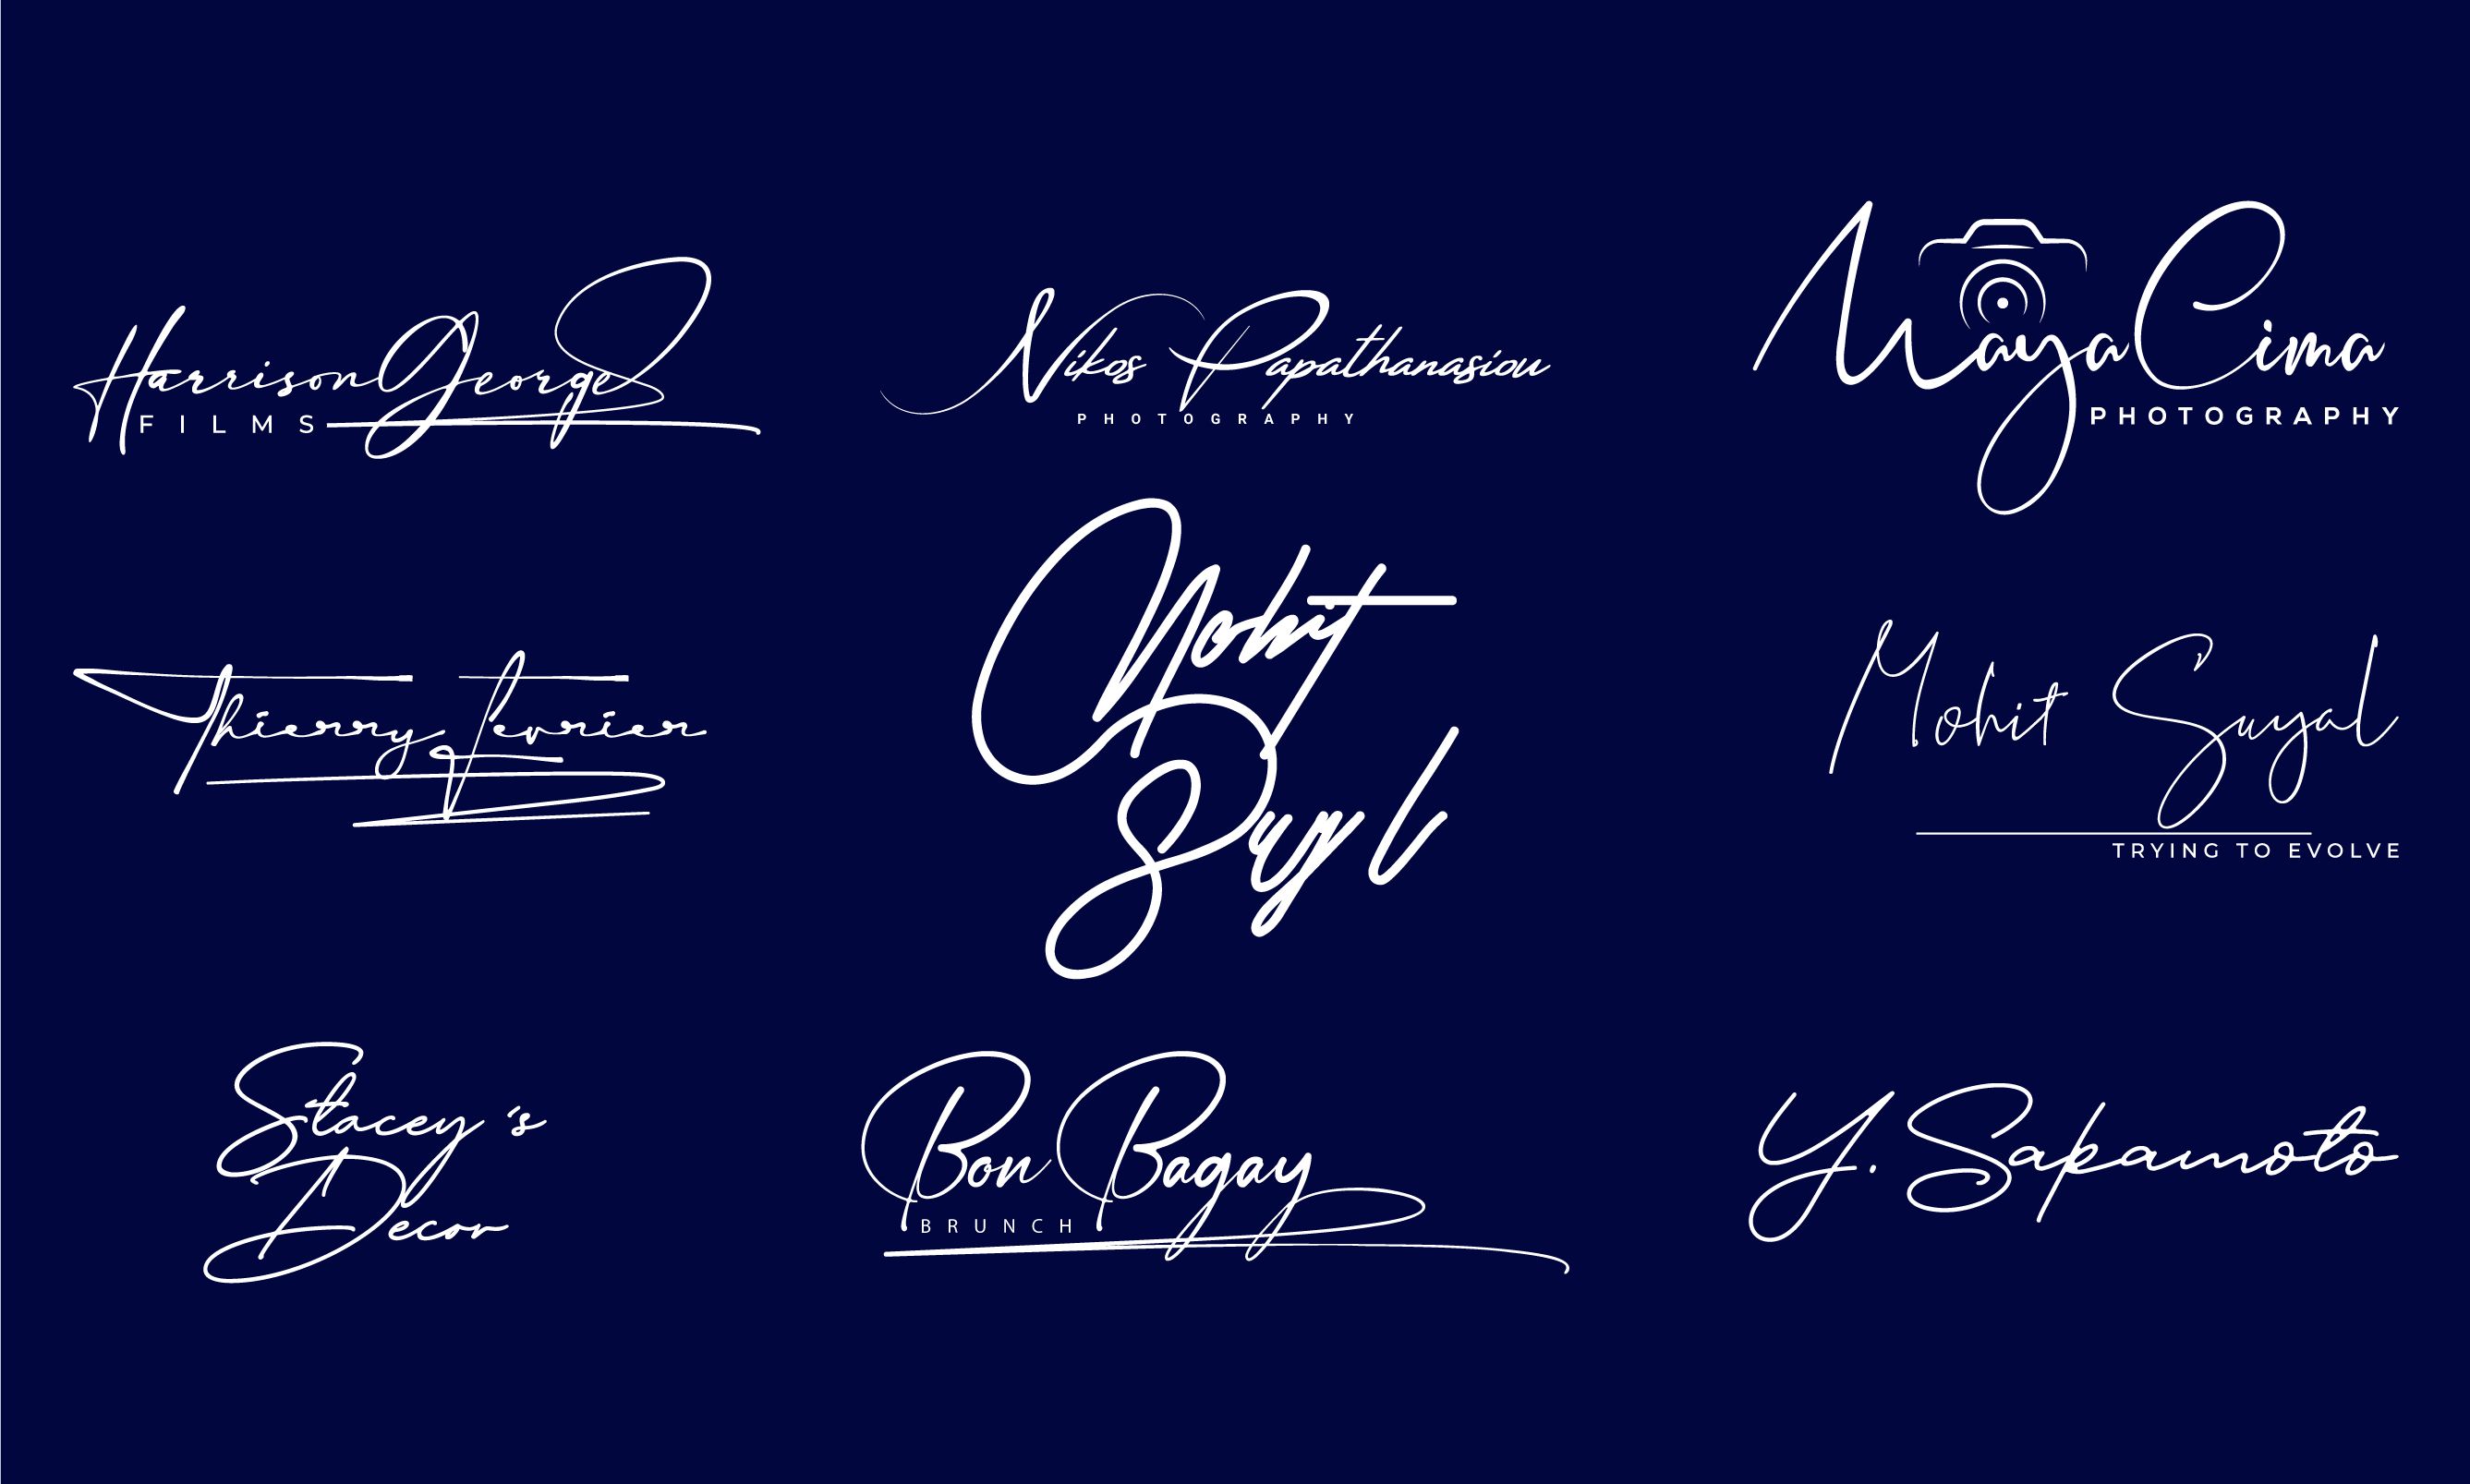 Harrison George
FILMS
Nikos Papathanasiou
PHOTOGRAPHY
Maya Cima
PHOTOGRAPHY
Thierry Fevrier
Mohit
Suyal
Mohit Suyal
TRYING TO EVOLVE
Stacey's
Decor
Bon Bagay
BRUNCH
Y. Sakamoto